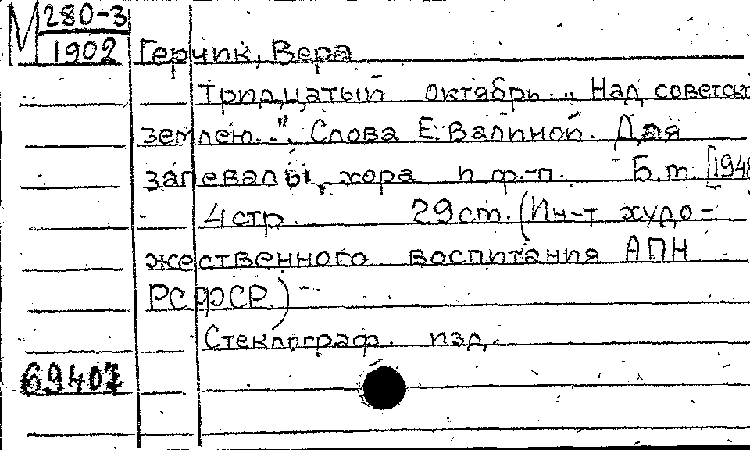 М 280-3
1902
Герчик, Вера
Тридцатый октябрь. „Над советск
землею..", Слова Е. Валиной. Для
запевалы, хора и ф.-п. Б.м. [1948
4 стр. 29 см. (Ин-т худо-
жественного воспитания АПН
РСФСР)
Стеклограф. изд.
69407